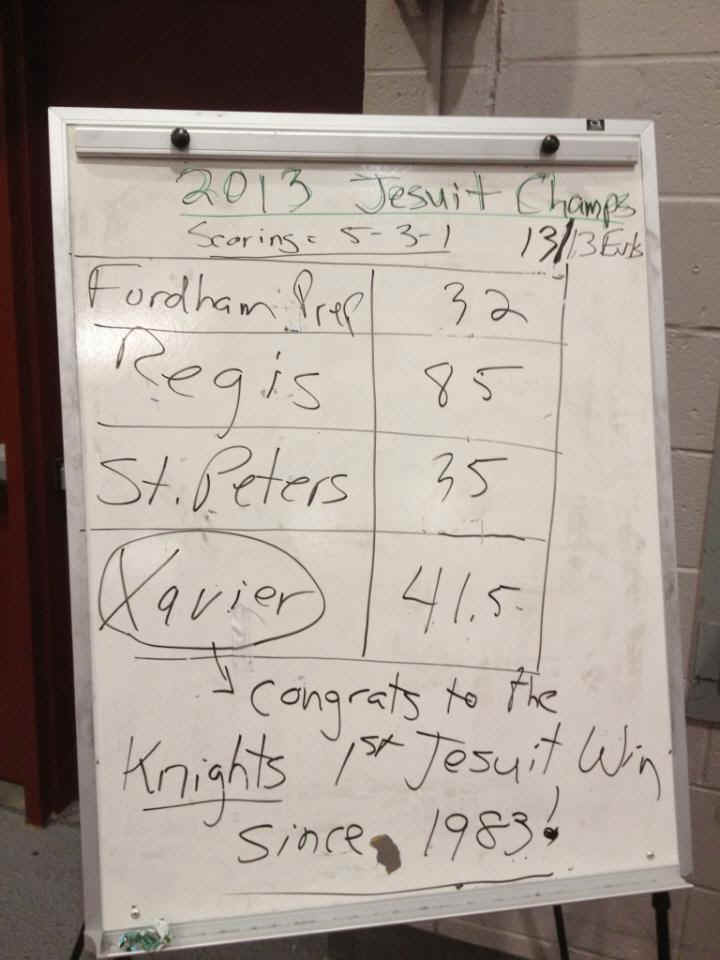 2013 Jesuit Champs
Scoring = 5-3-1 13/13 Evts
Fordham Prep 32
Regis 8.5
St. Peters 35
Xavier 41.5
Congrats to the
Knights 1st Jesuit Win
since 1983!